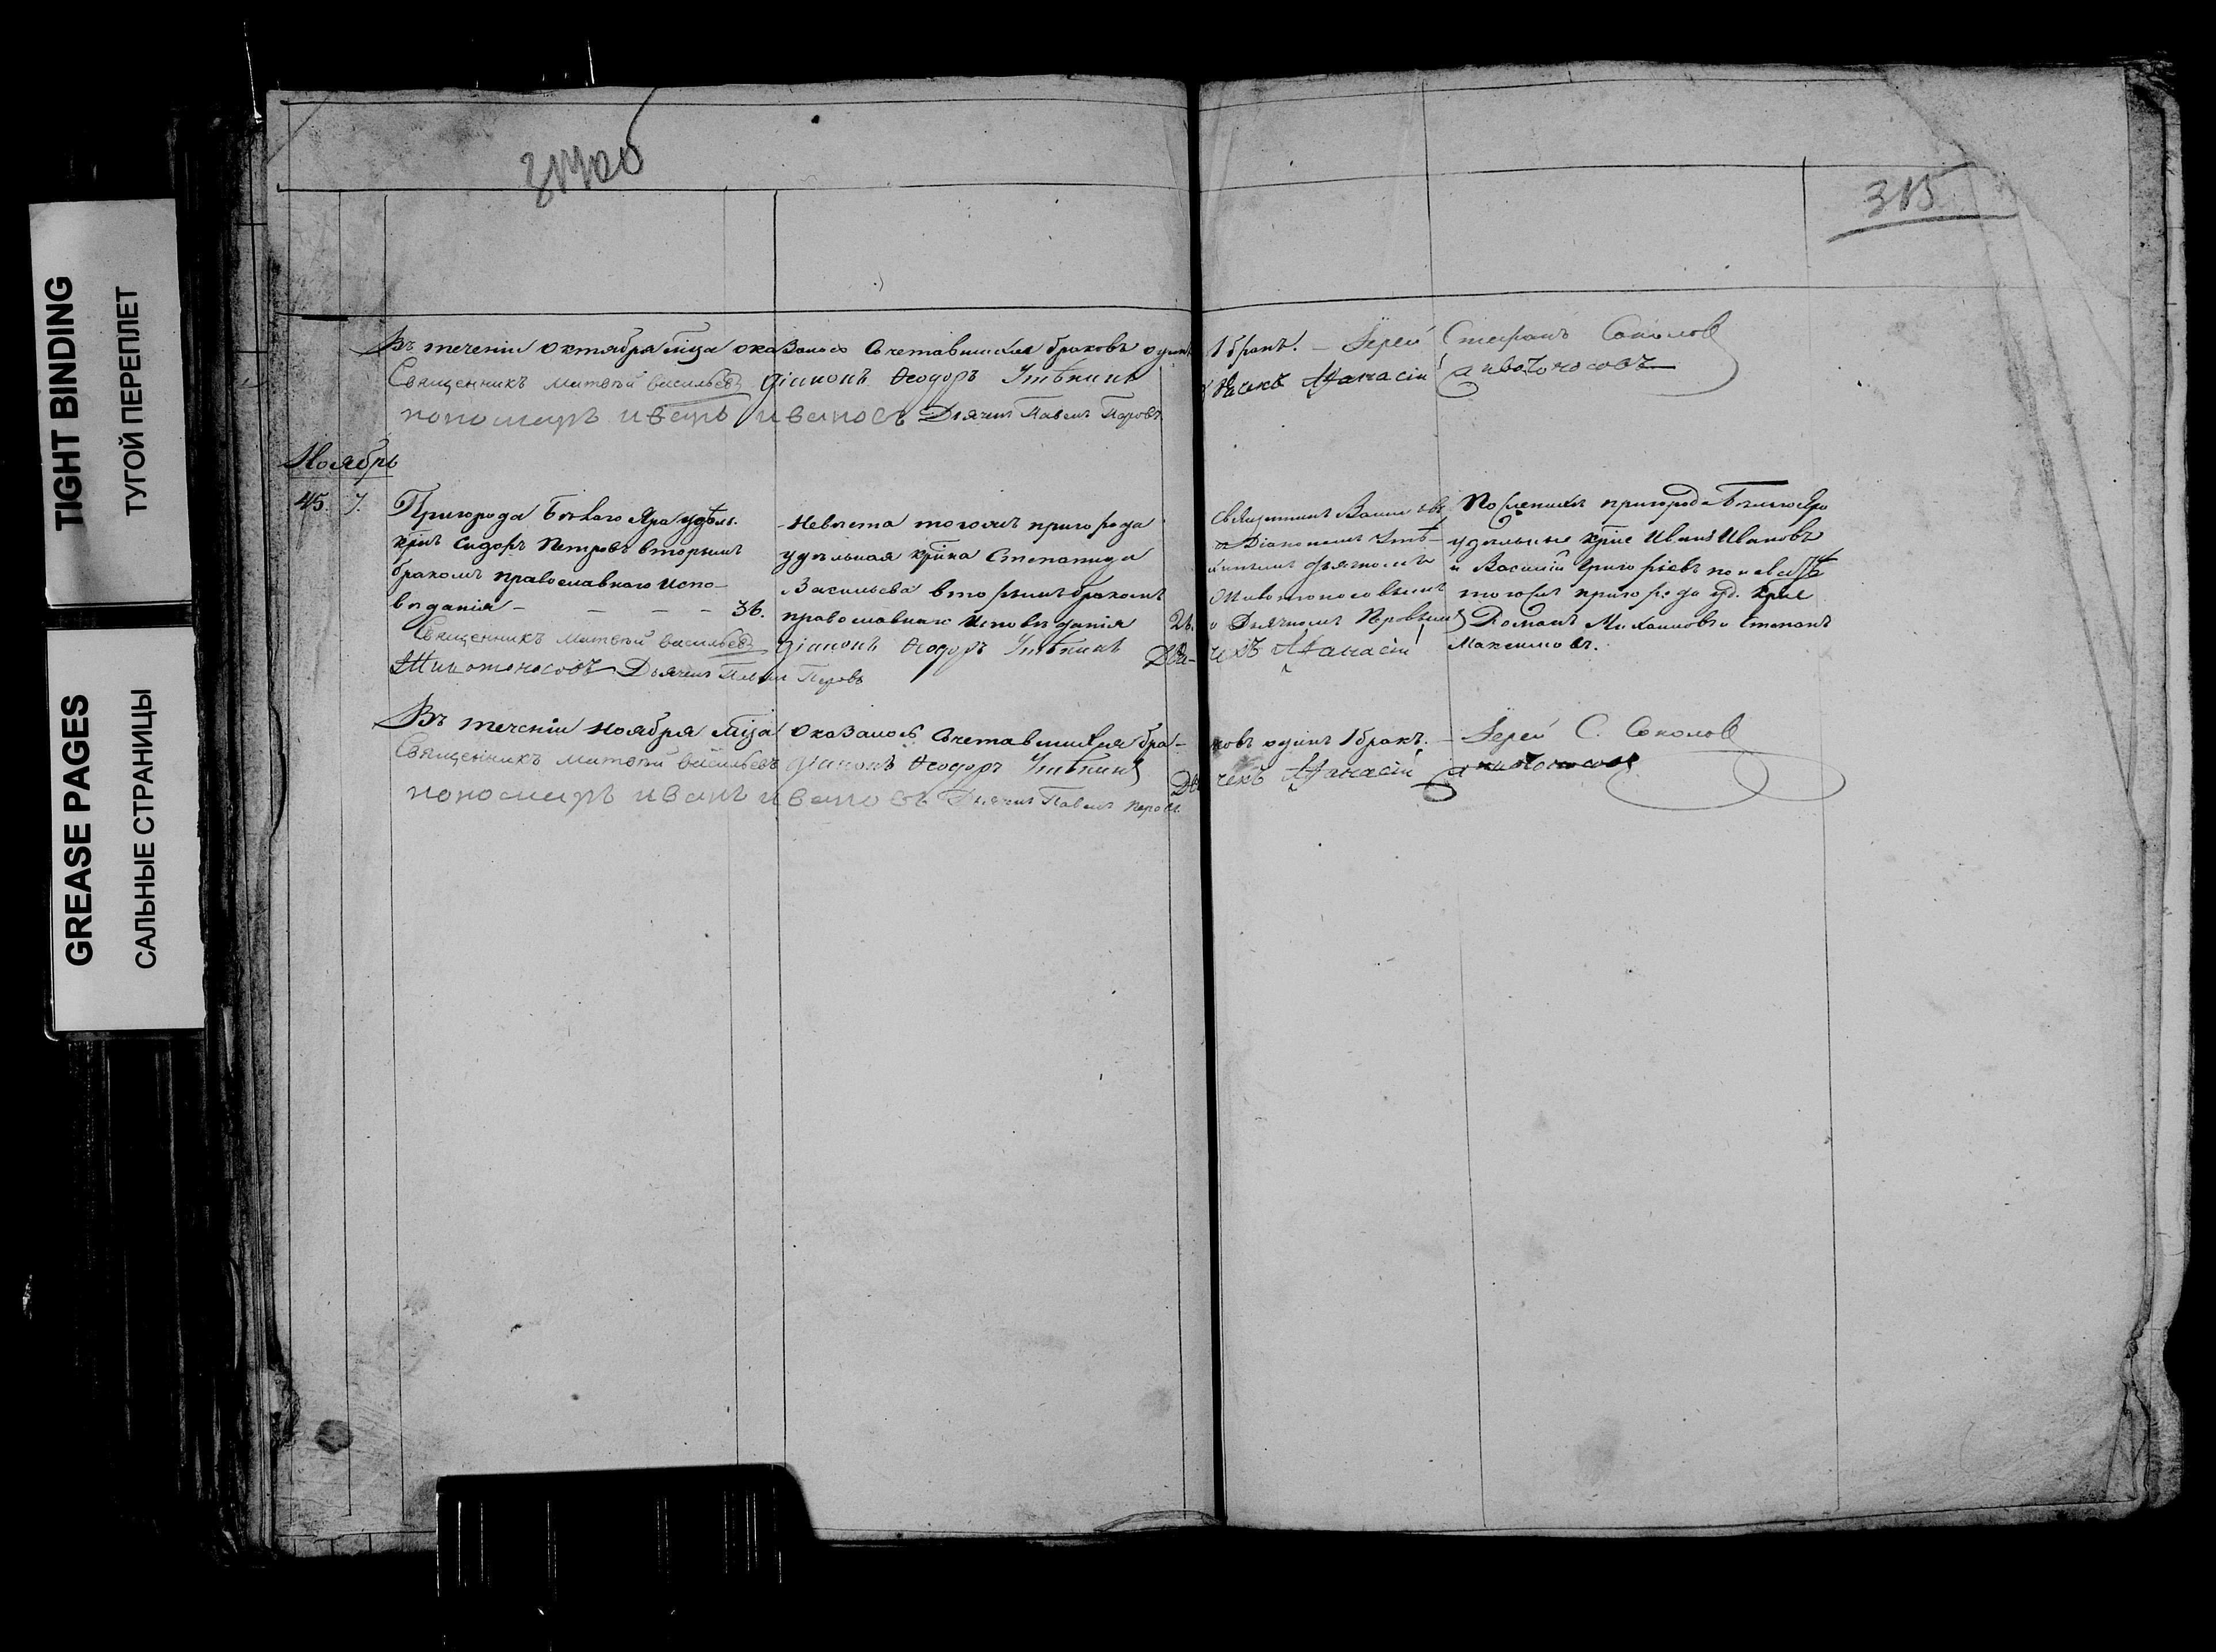 TIGHT BINDING
ТУГОЙ ПЕРЕПЛЕТ
GREASE PAGES
САЛЬНЫЕ СТРАНИЦЫ
315
Въ теченіи октября мѣца оказалось сочетавшихся браковъ одинъ
1 бракъ. – Іерей Стефанъ Соколов
Священникъ Матвѣй Васильевъ Діаконъ Ѳеодоръ Утѣхинъ
Аѳанасій Животоносовъ
пономарь иванъ ивановъ Дьячекъ Павелъ Перовъ
Ноябрь
45. 7.
Пригорода Бѣлаго Яра удѣль.
крнъ Сидоръ Петровъ вторымъ
бракомъ православнаго испо-
вѣданія – – – – 36.
Невѣста тогожъ пригорода
удѣльная крнка Степанида
Васильева вторымъ бракомъ
православнаго исповѣданія
Священникъ
и Діакономъ Утѣ-
хинымъ дьячкомъ
Животоносовымъ
и Дьячкомъ Перовымъ
По женихѣ пригорода Бѣлаго Яра
удѣльные крне Иванъ Ивановъ
и Василій Григорьевъ по невѣстѣ
тогожъ пригорода уд. крне
Романъ Михайловъ и Степанъ
Максимовъ.
Священникъ Матвѣй Васильевъ Діаконъ Ѳеодоръ Утѣхинъ Дья-
чекъ Аѳанасій
Животоносовъ Дьячекъ Павелъ Перовъ
Въ теченіи ноября мѣца оказалось сочетавшихся бра-
ковъ одинъ 1 бракъ. – Іерей С. Соколов
Священникъ Матвѣй Васильевъ Діаконъ Ѳеодоръ Утѣхинъ Дья
чекъ Аѳанасій Животоносовъ
пономарь иванъ ивановъ Дьячекъ Павелъ Перовъ